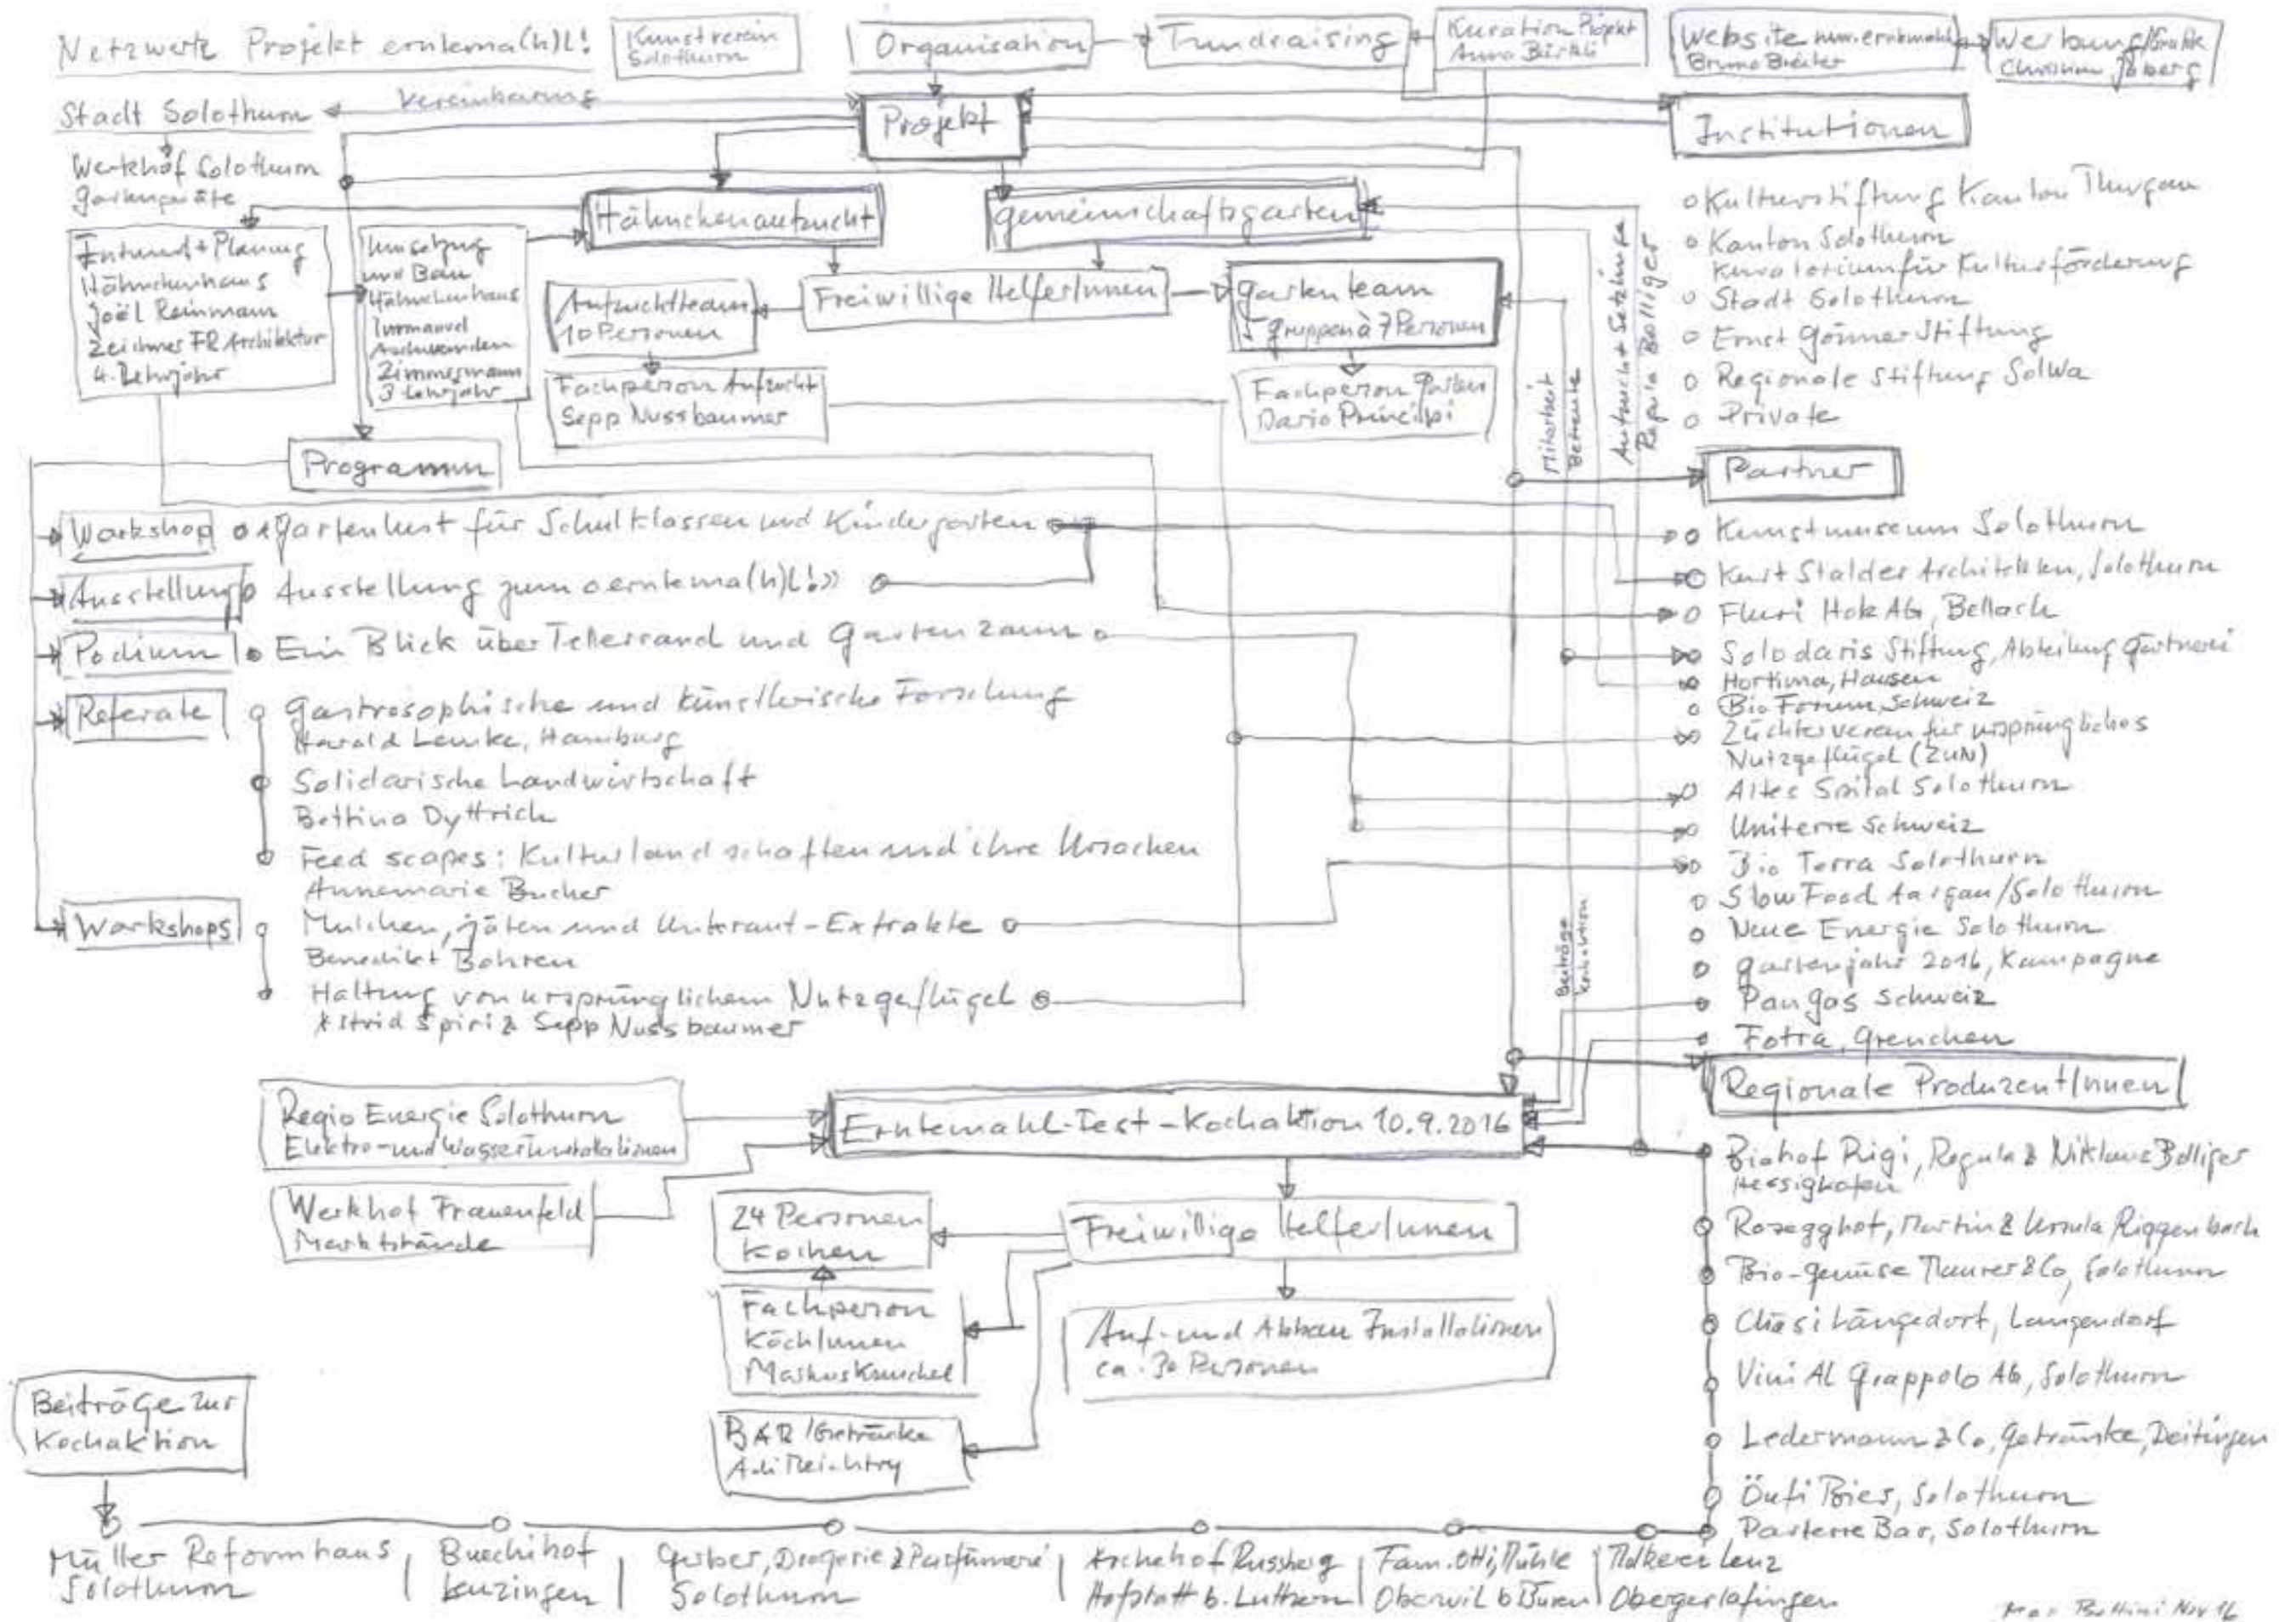 Netzwerk Projekt erntema(h)l!
Kunstverein
Solothurn
Organisation
Fundraising
Kuration Projekt
Anna Bürkli
Website
Werbung/Grafik
Stadt Solothurn
Vereinbarung
Projekt
Institutionen
Werkhof Solothurn
Gartengeräte
Hähnchenaufzucht
Gemeinschaftsgarten
Entwurf + Planung
Hähnchenhaus
Joël Reinmann
Zeichner FR Architektur
4. Lehrjahr
Umsetzung
und Bau
Hähnchenhaus
Immanuel
Aschwanden
Zimmermann
3. Lehrjahr
Aufzuchtteam
10 Personen
Freiwillige HelferInnen
Gartenteam
5 Gruppen à 7 Personen
Fachperson Aufzucht
Sepp Nussbaumer
Fachperson Garten
Dario Principi
Mitarbeit
Betreute
Aufzucht Setzlinge
Regula Bolliger
Kulturstiftung Kanton Thurgau
Kanton Solothurn
Kuratorium für Kulturförderung
Stadt Solothurn
Ernst Göhner Stiftung
Regionale Stiftung SolWa
Private
Programm
Partner
Workshop
Gartenlust für Schulklassen und Kindergarten
Ausstellung
Ausstellung zum «erntema(h)l!»
Podium
Ein Blick über Tellerrand und Gartenzaun
Referate
Gastrosophische und künstlerische Forschung
Harald Lemke, Hamburg
Solidarische Landwirtschaft
Bettina Dyttrich
Feed scapes: Kulturlandschaften und ihre Ursachen
Annemarie Bucher
Workshops
Mulchen, jäten und Unkraut-Extrakte
Benedikt Bohren
Haltung von ursprünglichem Nutzgeflügel
Astrid Spiri & Sepp Nussbaumer
Kunstmuseum Solothurn
Kurt Stalder Architekten, Solothurn
Fluri Holz AG, Bellach
Solodaris Stiftung, Abteilung Gärtnerei
Hortima, Hausen
Bio Forum Schweiz
Züchterverein für ursprüngliches
Nutzgeflügel (ZUN)
Altes Spital Solothurn
Uniterre Schweiz
Bio Terra Solothurn
Slow Food Aargau/Solothurn
Neue Energie Solothurn
Gartenjahr 2016, Kampagne
PanGas Schweiz
Fotra, Grenchen
Beiträge
Kochaktion
Regionale ProduzentInnen
Regio Energie Solothurn
Elektro- und Wasserinstallationen
Erntemahl-Test-Kochaktion 10.9.2016
Werkhof Frauenfeld
Marktstände
24 Personen
kochen
Freiwillige HelferInnen
Fachperson
KöchInnen
Auf- und Abbau Installationen
ca. 30 Personen
BAR/Getränke
Biohof Rigi, Regula & Niklaus Bolliger
Hessigkofen
Rosegghof, Martin & Ursula Riggenbach
Bio-Gemüse Maurer & Co, Solothurn
Chäsi Längedorf, Langendorf
Vini Al Grappolo AG, Solothurn
Ledermann & Co, Getränke, Deitingen
Öufi Bier, Solothurn
Parterre Bar, Solothurn
Beiträge zur
Kochaktion
Müller Reformhaus
Solothurn
Buechihof
Lenzingen
Gerber, Drogerie & Parfümerie
Solothurn
Archehof Russberg
Hofstatt b. Luthern
Fam. Otti, Mühle
Oberwil b Büren
Molkerei Lenz
Obergerlafingen
Max Bottini Nov 16